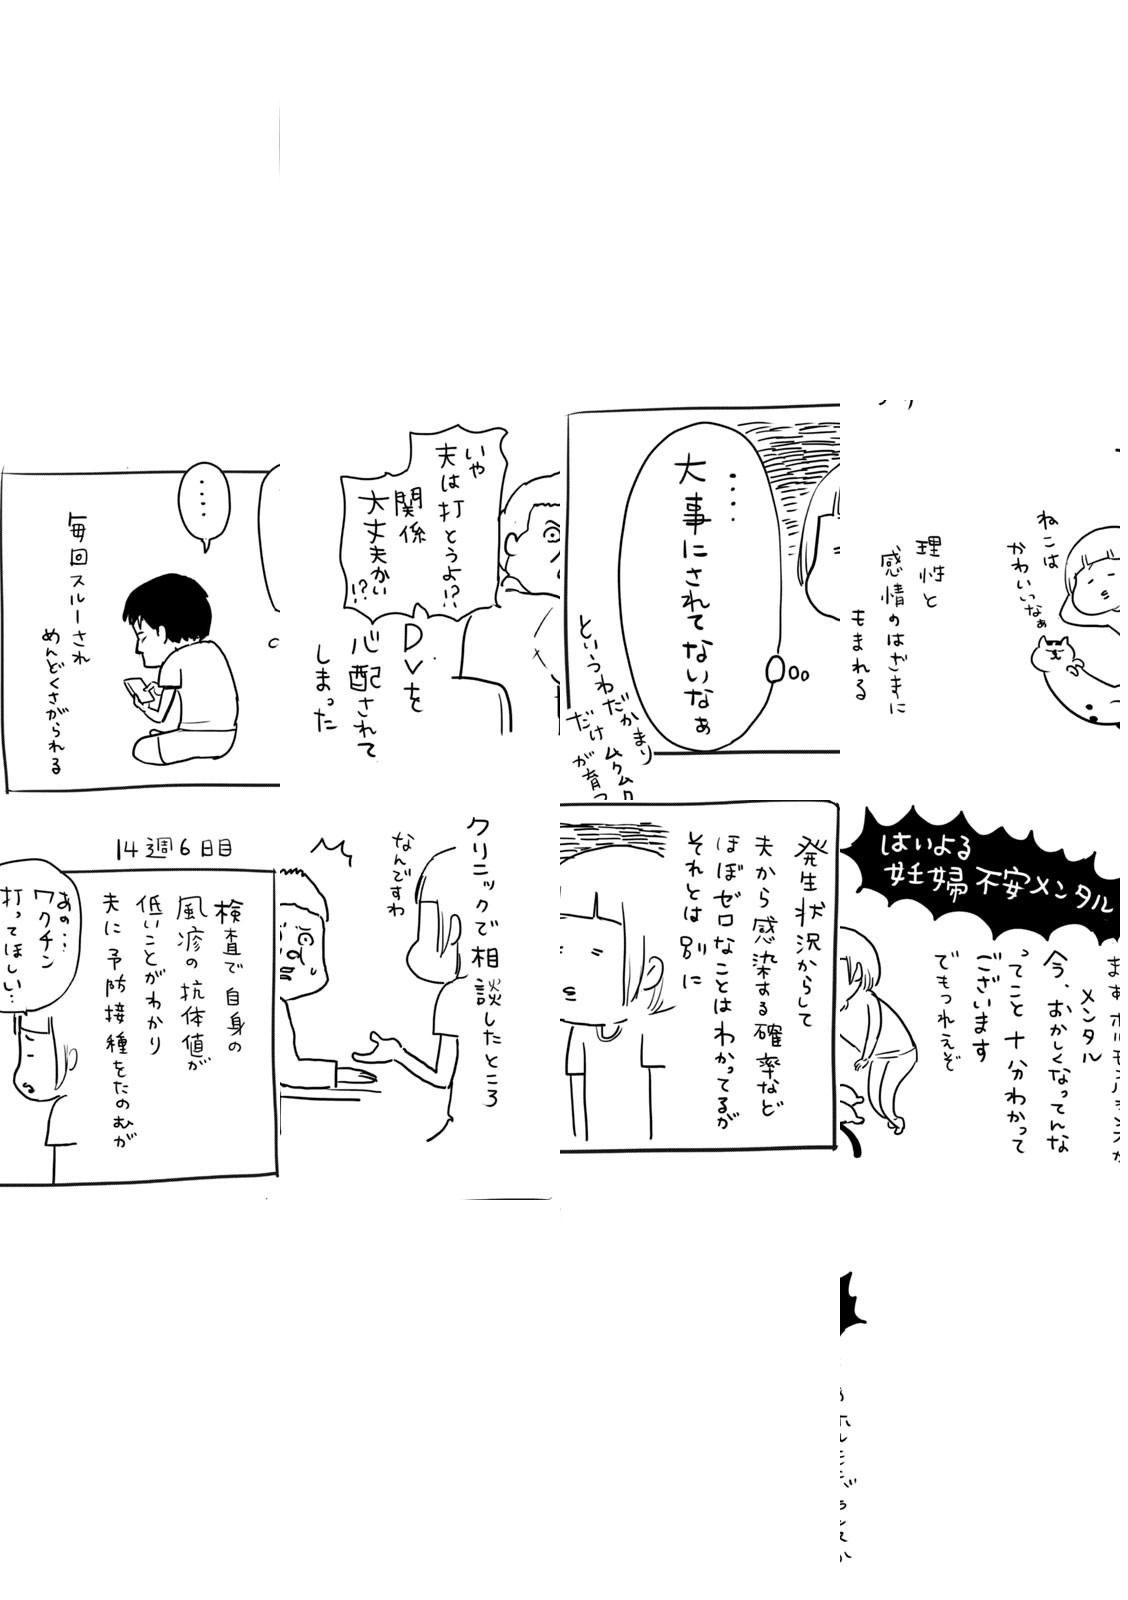 14週6日目
検査で自身の
風疹の抗体値が
低いことがわかり
夫に予防接種をたのむが
あの…
ワクチン
打ってほしい…
‥‥
毎回スルーされ
めんどくさがられる
クリニックで相談したところ
なんですわ
いや
夫は打とうよ!?
関係
大丈夫かい
!?
DVを
心配されて
しまった
発生状況からして
夫から感染する確率など
ほぼゼロなことはわかってるが
それとは別に
‥‥
大事にされてないなぁ
というわだかまり
だけムクムク
が育つ
はいよる
妊婦不安メンタル
メンタル
今、おかしくなってんな
ってこと十分わかって
ございます
でもつれえぞ
ねこは
かわいいなぁ
理性と
感情のはざまに
もまれる